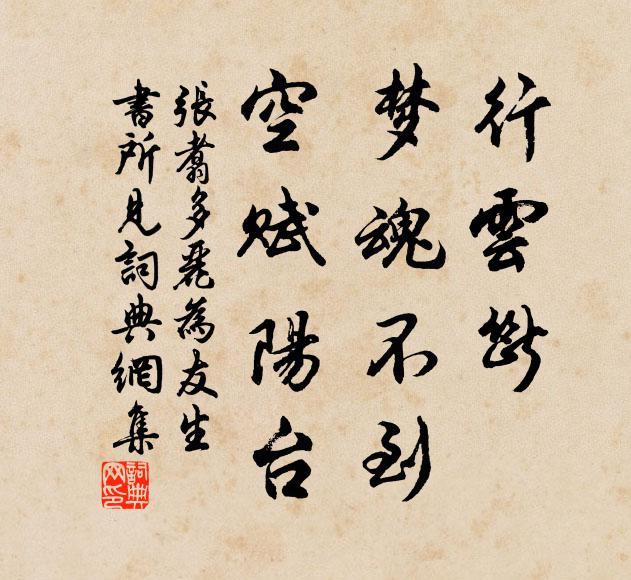 行雲斷
梦魂不到
空赋陽台
張翥多麗為友生
書所見詞典網集
詞典
网印